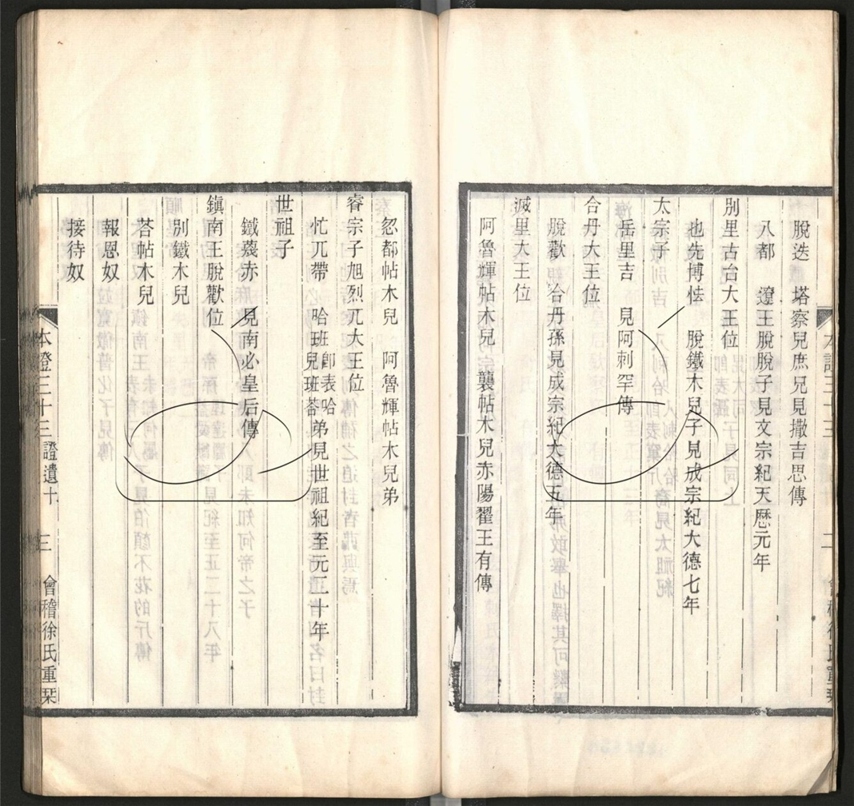 脫迭　塔察兒庶兄見撒吉思傳
八都　遼王脫脫子見文宗紀天歷元年
別里古台大王位
也先博怯　脫鐵木兒子見成宗紀大德七年
太宗子
岳里吉　見阿剌罕傳
合丹大王位
脫歡　合丹孫見成宗紀大德五年
滅里大王位
阿魯輝帖木兒　襲帖木兒赤陽翟王有傳
本證三十三
二
會稽徐氏重栞
忽都帖木兒　阿魯輝帖木兒弟
睿宗子旭烈兀大王位
忙兀帶　哈班兒即表哈班荅弟見世祖紀至元二十年
世祖子
鐵蔑赤　見南必皇后傳
鎮南王脫歡位
別鐵木兒
荅帖木兒
報恩奴
接待奴
本證三十三　證遺十
三
會稽徐氏重栞